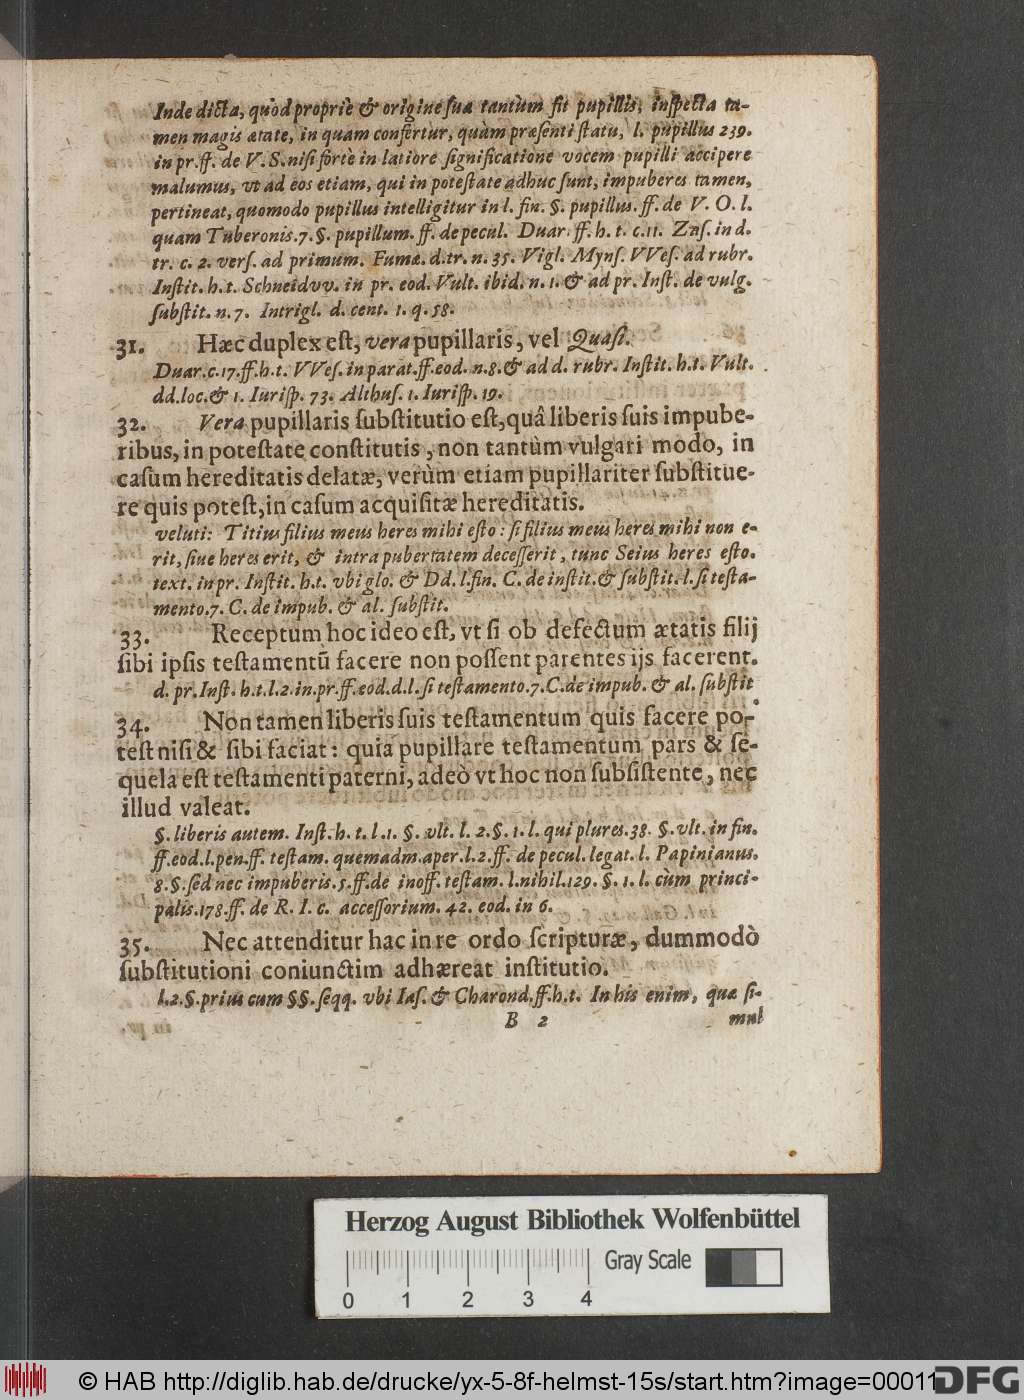 Inde dicta, quòd propriè & origine sua tantùm sit pupillis, inspecta ta-
men magis ætate, in quam confertur, quàm præsenti statu, l. pupillus 239.
in pr. ff. de V. S. nisi fortè in latiore significatione vocem pupilli accipere
malumus, vt ad eos etiam, qui in potestate adhuc sunt, impuberes tamen,
pertineat, quomodo pupillus intelligitur in l. fin. §. pupillus. ff. de V. O. l.
quam Tuberonis. 7. §. pupillum. ff. de pecul. Duar. ff. h. t. c. 11. Zas. in d.
tr. c. 2. vers. ad primum. Fumæ. d. tr. n. 35. Vigl. Myns. VVes. ad rubr.
Instit. h. t. Schneidvv. in pr. eod. Vult. ibid. n. 1. & ad pr. Inst. de vulg.
substit. n. 7. Intrigl. d. cent. 1. q. 58.
31. Hæc duplex est, vera pupillaris, vel Quasi.
Duar. c. 17. ff. h. t. VVes. in parat. ff. eod. n. 8. & ad d. rubr. Instit. h. t. Vult.
dd. loc. & 1. Iurisp. 73. Althus. 1. Iurisp. 19.
32. Vera pupillaris substitutio est, quâ liberis suis impube-
ribus, in potestate constitutis, non tantùm vulgari modo, in
casum hereditatis delatæ, verùm etiam pupillariter substitue-
re quis potest, in casum acquisitæ hereditatis.
veluti: Titius filius meus heres mihi esto: si filius meus heres mihi non e-
rit, siue heres erit, & intra pubertatem decesserit, tunc Seius heres esto.
text. in pr. Instit. h. t. vbi glo. & Dd. l. fin. C. de instit. & substit. l. si testa-
mento. 7. C. de impub. & al. substit.
33. Receptum hoc ideo est, vt si ob defectum ætatis filij
sibi ipsis testamentū facere non possent parentes ijs facerent.
d. pr. Inst. h. t. l. 2. in. pr. ff. eod. d. l. si testamento. 7. C. de impub. & al. substit
34. Non tamen liberis suis testamentum quis facere po-
test nisi & sibi faciat: quia pupillare testamentum pars & se-
quela est testamenti paterni, adeò vt hoc non subsistente, nec
illud valeat.
§. liberis autem. Inst. h. t. l. 1. §. vlt. l. 2. §. 1. l. qui plures. 38. §. vlt. in fin.
ff. eod. l. pen. ff. testam. quemadm. aper. l. 2. ff. de pecul. legat. l. Papinianus.
8. §. sed nec impuberis. 5. ff. de inoff. testam. l. nihil. 129. §. 1. l. cùm princi-
palis. 178. ff. de R. I. c. accessorium. 42. eod. in 6.
35. Nec attenditur hac in re ordo scripturæ, dummodò
substitutioni coniunctim adhæreat institutio.
l. 2. §. prius cum §§. seqq. vbi Ias. & Charond. ff. h. t. In his enim, quæ si-
B 2 mul
Herzog August Bibliothek Wolfenbüttel
Gray Scale
0 1 2 3 4
© HAB http://diglib.hab.de/drucke/yx-5-8f-helmst-15s/start.htm?image=00011
DFG